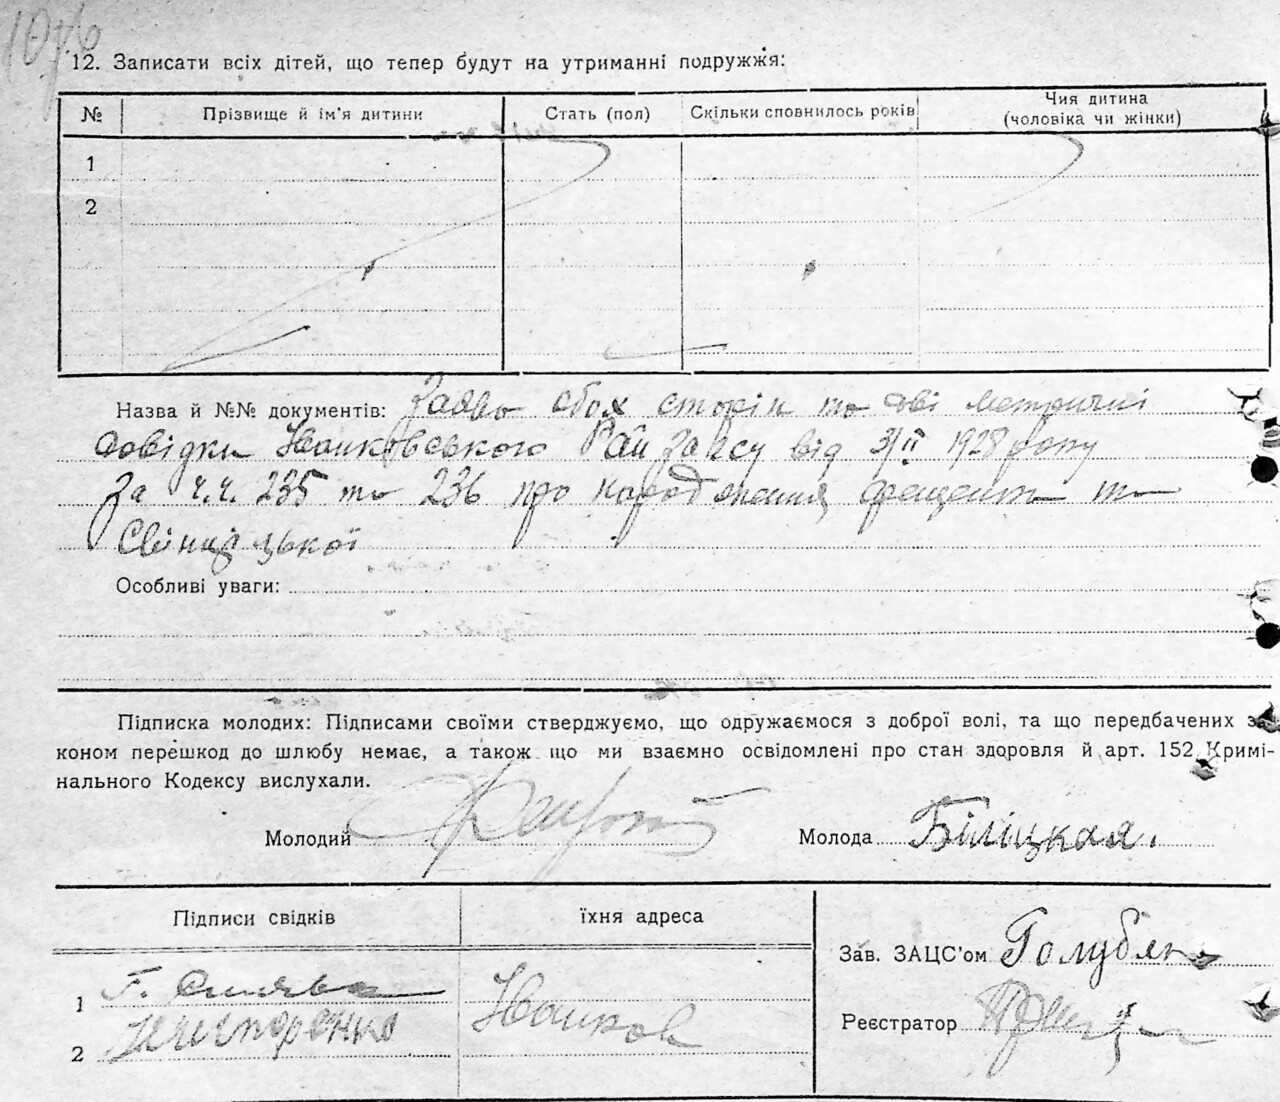 1076
12. Записати всіх дітей, що тепер будут на утриманні подружжя:
№ Прізвище й ім'я дитини Стать (пол) Скільки сповнилось років Чия дитина
(чоловіка чи жінки)
1
2
Назва й №№ документів: Заява обох сторін та дві метричні
довідки Іванковського Рай загсу від 3/ІІ 1928 року
За ч.ч. 235 та 236 про народження та
Особливі уваги:
Підписка молодих: Підписами своїми стверджуємо, що одружаємося з доброї волі, та що передбачених за-
коном перешкод до шлюбу немає, а також що ми взаємно освідомлені про стан здоровля й арт. 152 Кримі-
нального Кодексу вислухали.
Молодий Молода Біліцкая.
Підписи свідків їхня адреса
Зав. ЗАЦС'ом Голубян
1 Г. Іванков
Реєстратор
2